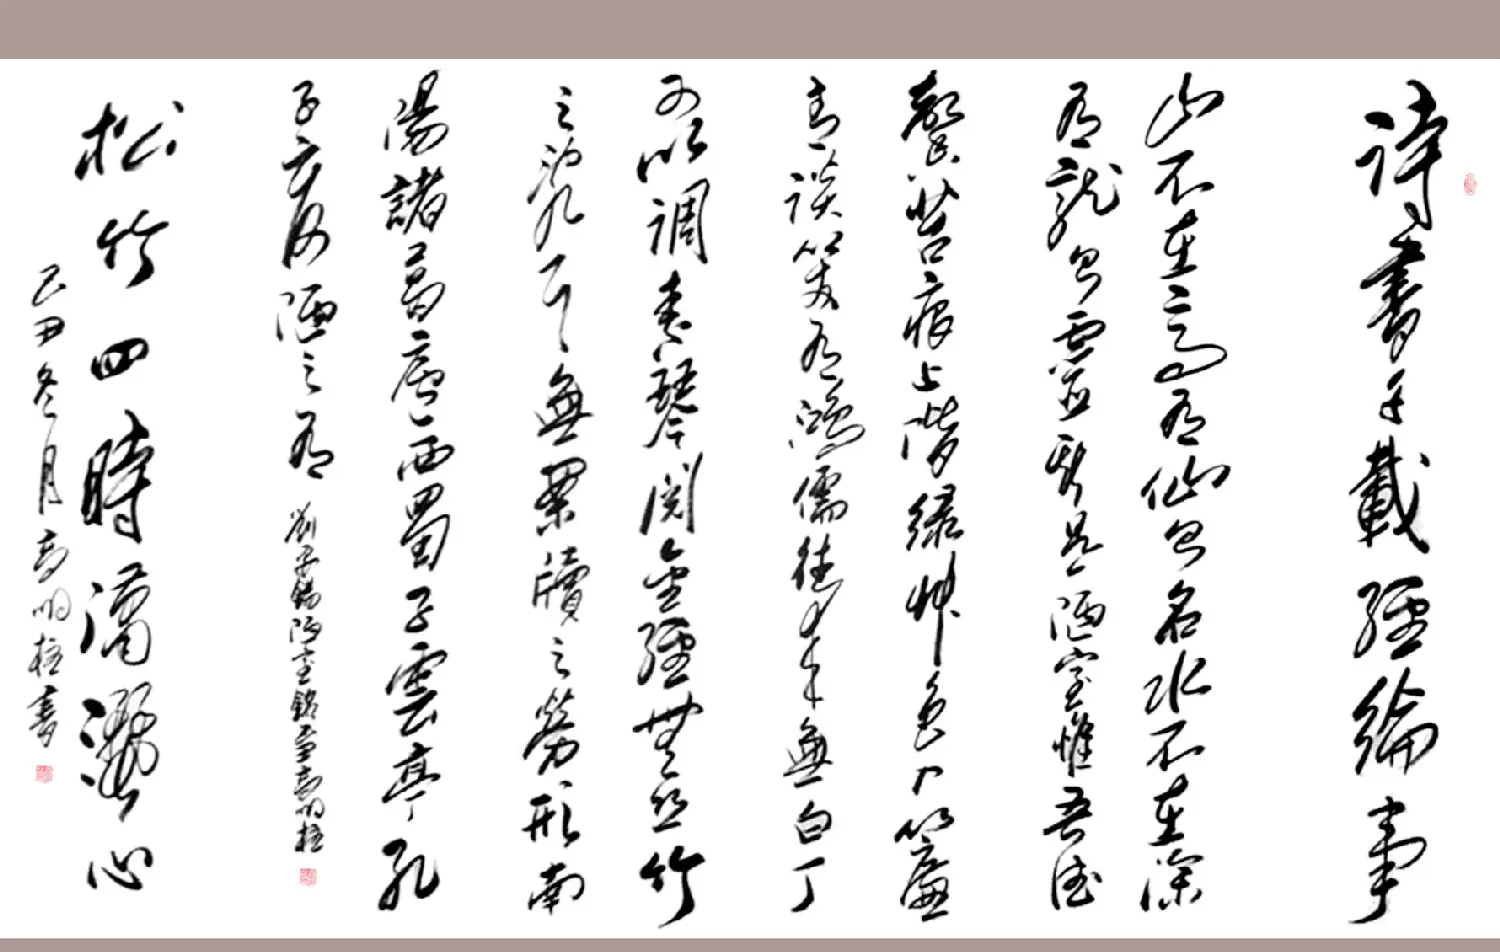 詩書千載經綸事
山不在高有仙則名水不在深
有龍則靈斯是陋室惟吾德
馨苔痕上階綠艸色入簾
青談笑有鴻儒往來無白丁
可以調素琴閱金經無絲竹
之亂耳無案牘之勞形南
陽諸葛廬西蜀子雲亭孔
子云何陋之有
劉禹錫陋室銘 高明
松竹四時瀟灑心
己丑冬月高明 書